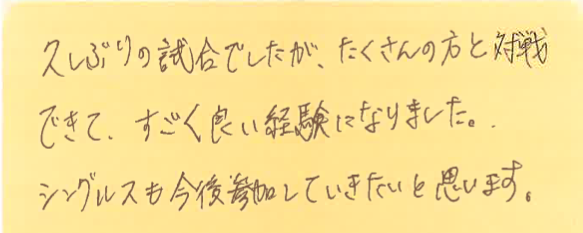 久しぶりの試合でしたが、たくさんの方と対戦
できて、すごく良い経験になりました。
シングルスも今後参加していきたいと思います。